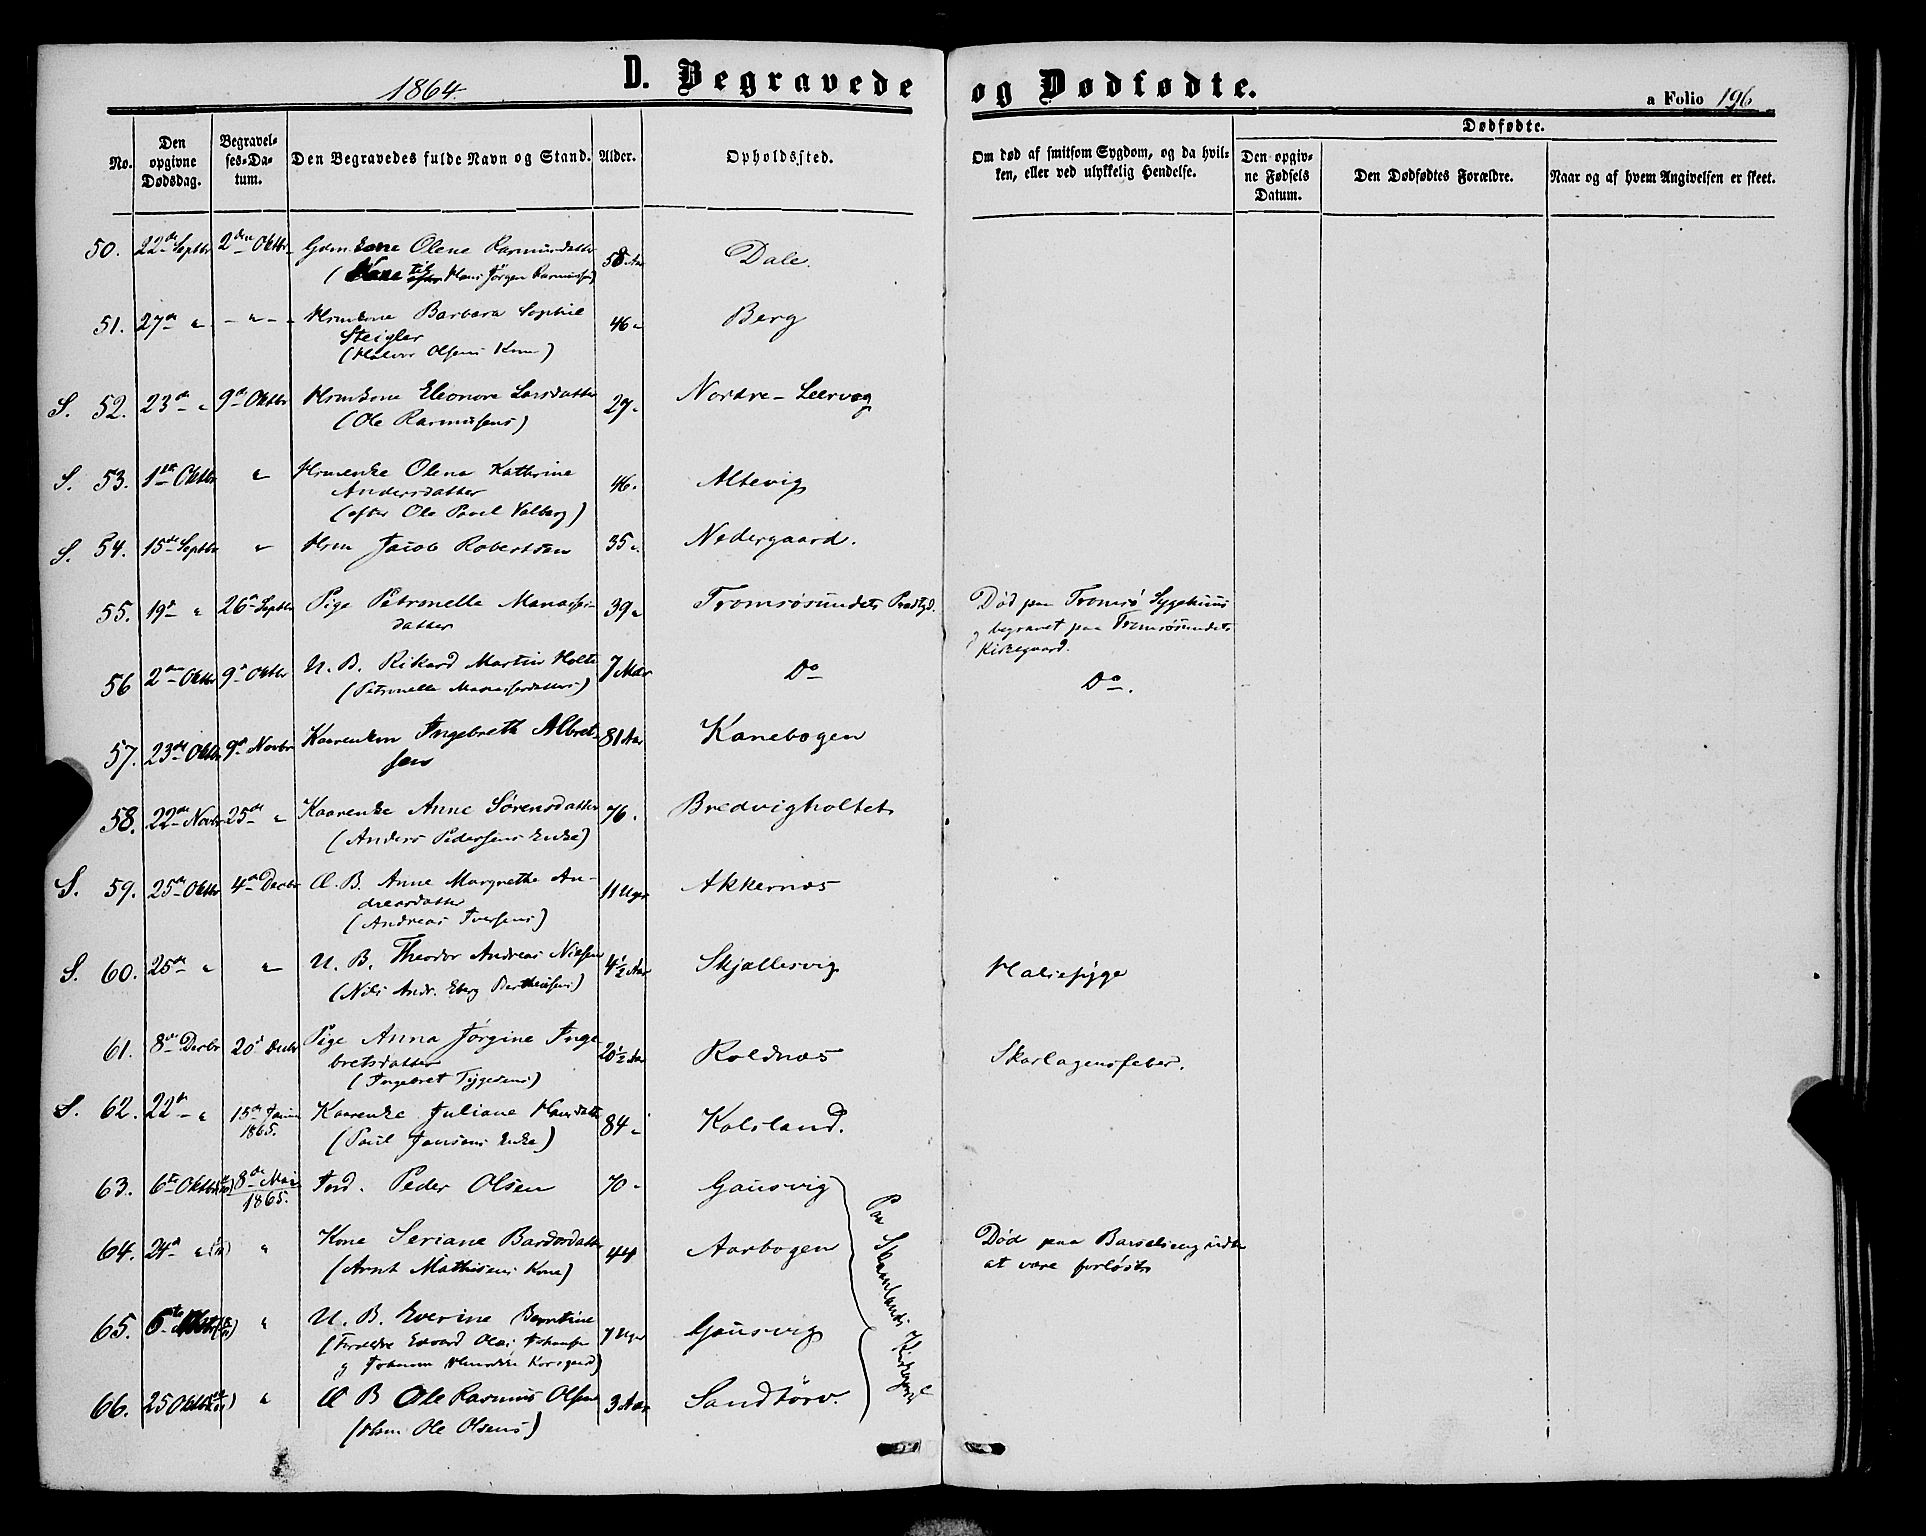 1864.
D. Begravede og Dødfødte.
a Folio 196
No.
Den opgivne Dødsdag.
Begravelses-Datum.
Den Begravedes fulde Navn og Stand.
Alder.
Opholdssted.
Om død af smitsom Sygdom, og da hvilken, eller ved ulykkelig Hendelse.
Dødfødte.
Den opgivne Fødsels Datum.
Den Dødfødtes Forældre.
Naar og af hvem Angivelsen er skeet.
50. 22de Septbr 2den Oktbr Gdm kone Olene Rasmusdatter 58 Aar Dale.
(Kone til Hans Jørgen Rasmussen)
51. 27de " - " - Hrmkone Barbara Sophie 46 " Berg
Steigler
(Halvor Olsens Kone)
S. 52. 23de " 9de Oktbr Hrmkone Eleonore Larsdatter 29 " Nordre-Leervog
(Ole Rasmusens)
S. 53. 1ste Oktbr " Hrmenke Olena Kathrine 46 " Altevig
Andersdatter
(efter Ole Povel Valberg)
S. 54. 15de Septbr " Hrm Jacob Robertsen 35 " Nedergaard.
55. 19de " 26de Septbr Pige Petronelle Manasse- 39 " Tromsøsundets Præstgd. Død paa Tromsø Sygehuus
datter og begravet paa Tromsøsundets
Kirkegaard.
56 2den Oktbr 9de Oktbr U. B. Rikard Martin Holte 7 Mdr Do Do.
(Petronelle Manassedatters)
57. 23de Oktbr 9de Novbr Kaarenkm Ingebreth Albret- 81 Aar Kanebogen
sen
58. 22de Novbr 25de " Kaarenke Anne Sørensdatter 76 " Bredvigholtet
(Anders Pedersens Enke)
S. 59. 25de Oktbr 4de Decbr Æ. B. Anne Margrethe An- 11 Uger Akkernæs
dreasdatter
(Andreas Iversens)
S. 60. 25de " " U. B. Theodor Andreas Nielsen 4½ Aar Skjællesvig Halssyge
(Nils Andr. Eberg Bertheusens)
61. 8de Decbr 20de Decbr Pige Anna Jørgine Inge 20½ Aar Roldnæs Skarlagensfeber.
bretsdatter
(Ingebret Tygesens)
S. 62. 22de " 15de Januar 1865. Kaarenke Juliane Hansdatter 84 " Kolsland.
(Paul Jansens Enke)
63. 6te Oktbr 8de Mai 1865. Ind. Peder Olsen 70 " Gausvig
64. 24de " " Kone Seriane Bardosdatter 44 Aarbogen Død paa Barselseng uden
(Arnt Mathisens Kone) at være forløst
65. 6te " U. B. Everine Berntine 7 Uger Gausvig
(Forældre Edvard Olai Johansen
og Johanna Henrikke Korsgaard)
66. 25 Oktbr " Æ B Ole Rasmus Olsen 3 Aar Sandtorv.
(Hsm Ole Olsens)
Paa Slaamlands Kirkegaard